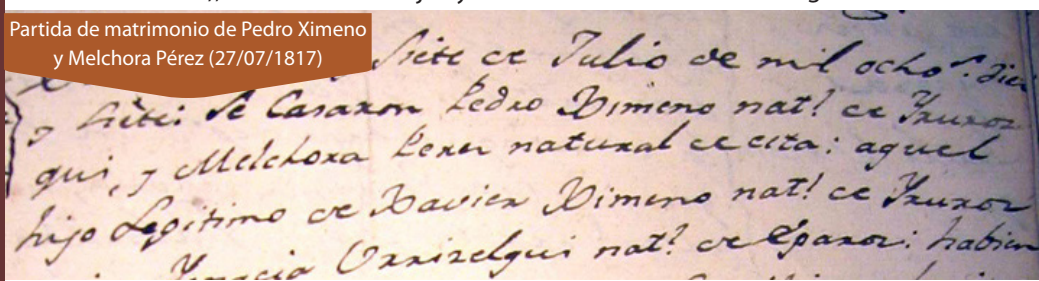 Partida de matrimonio de Pedro Ximeno
y Melchora Pérez (27/07/1817)
Siete de Julio de mil ochos. diez
y siete: Se Casaron Pedro Ximeno nat.l de Yruroz
qui, y Melchora Perez natural de esta: aquel
hijo Legitimo de Xavier Ximeno nat.l de Yruroz
Ygnacia Urrizelqui nat.l de Eparoz: habien